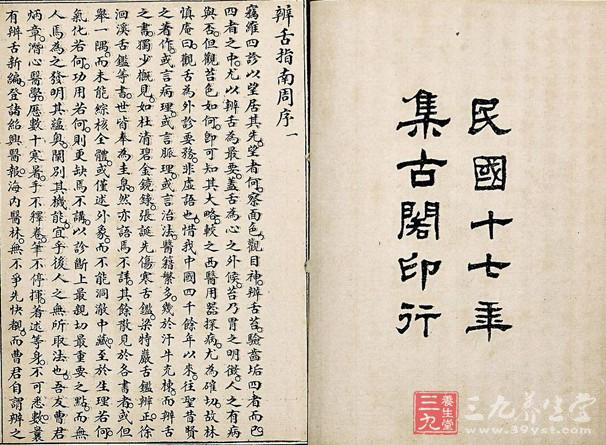 民國十七年
集古閣印行
辨舌指南周序 一
竊維四診以望居其先望者何察面色觀目神辨舌苔驗齒垢四者而已
四者之中尤以辨舌為最要蓋舌為心之外候苔乃胃之明徵人之有病
與否但觀苔色如何即可知其大略較之西醫用器探病尤為確切故林
慎庵曰觀舌為外診要務非虛語也惜我中國四千餘年以來往聖昔賢
之著作或言病理或言脈理或言治法醫籍繁多幾於汗牛充棟而辨舌
之書獨少概見如杜清碧金鏡錄張誕先傷寒舌鑑梁特巖舌鑑辨正徐
洄溪舌鑑等書世皆奉為圭臬然亦語焉不詳其餘散見於各書者或但
舉一隅而未能綜核全體或僅述外象而不能洞澈中藏至於生理若何
氣化若何功用若何則更缺焉不講以診斷上最親切最重要之點而無
人焉為之發明其蘊奧闡別其機能宜乎後人之無所取法也吾友曹君
炳章潛心醫學歷數十寒暑手不釋卷筆不停揮著述等身不可悉數曩
有辨舌新編登諸紹興醫報海內醫林無不爭先快覩而曹君自謂辨之
三九
養生堂
三九养生堂
www.39yst.com